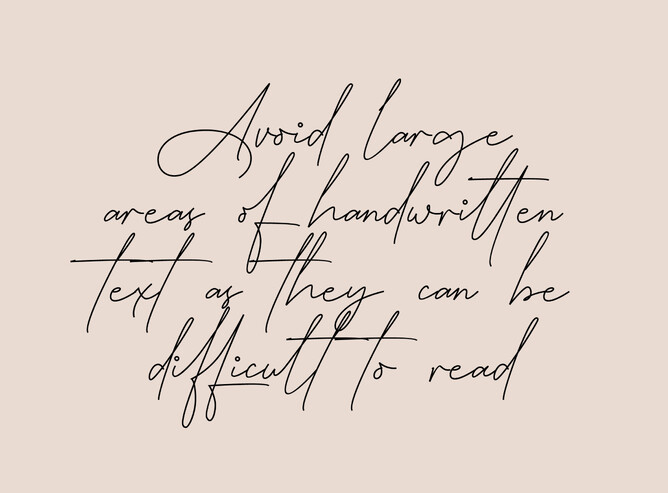 Avoid large
areas of handwritten
text as they can be
difficult to read